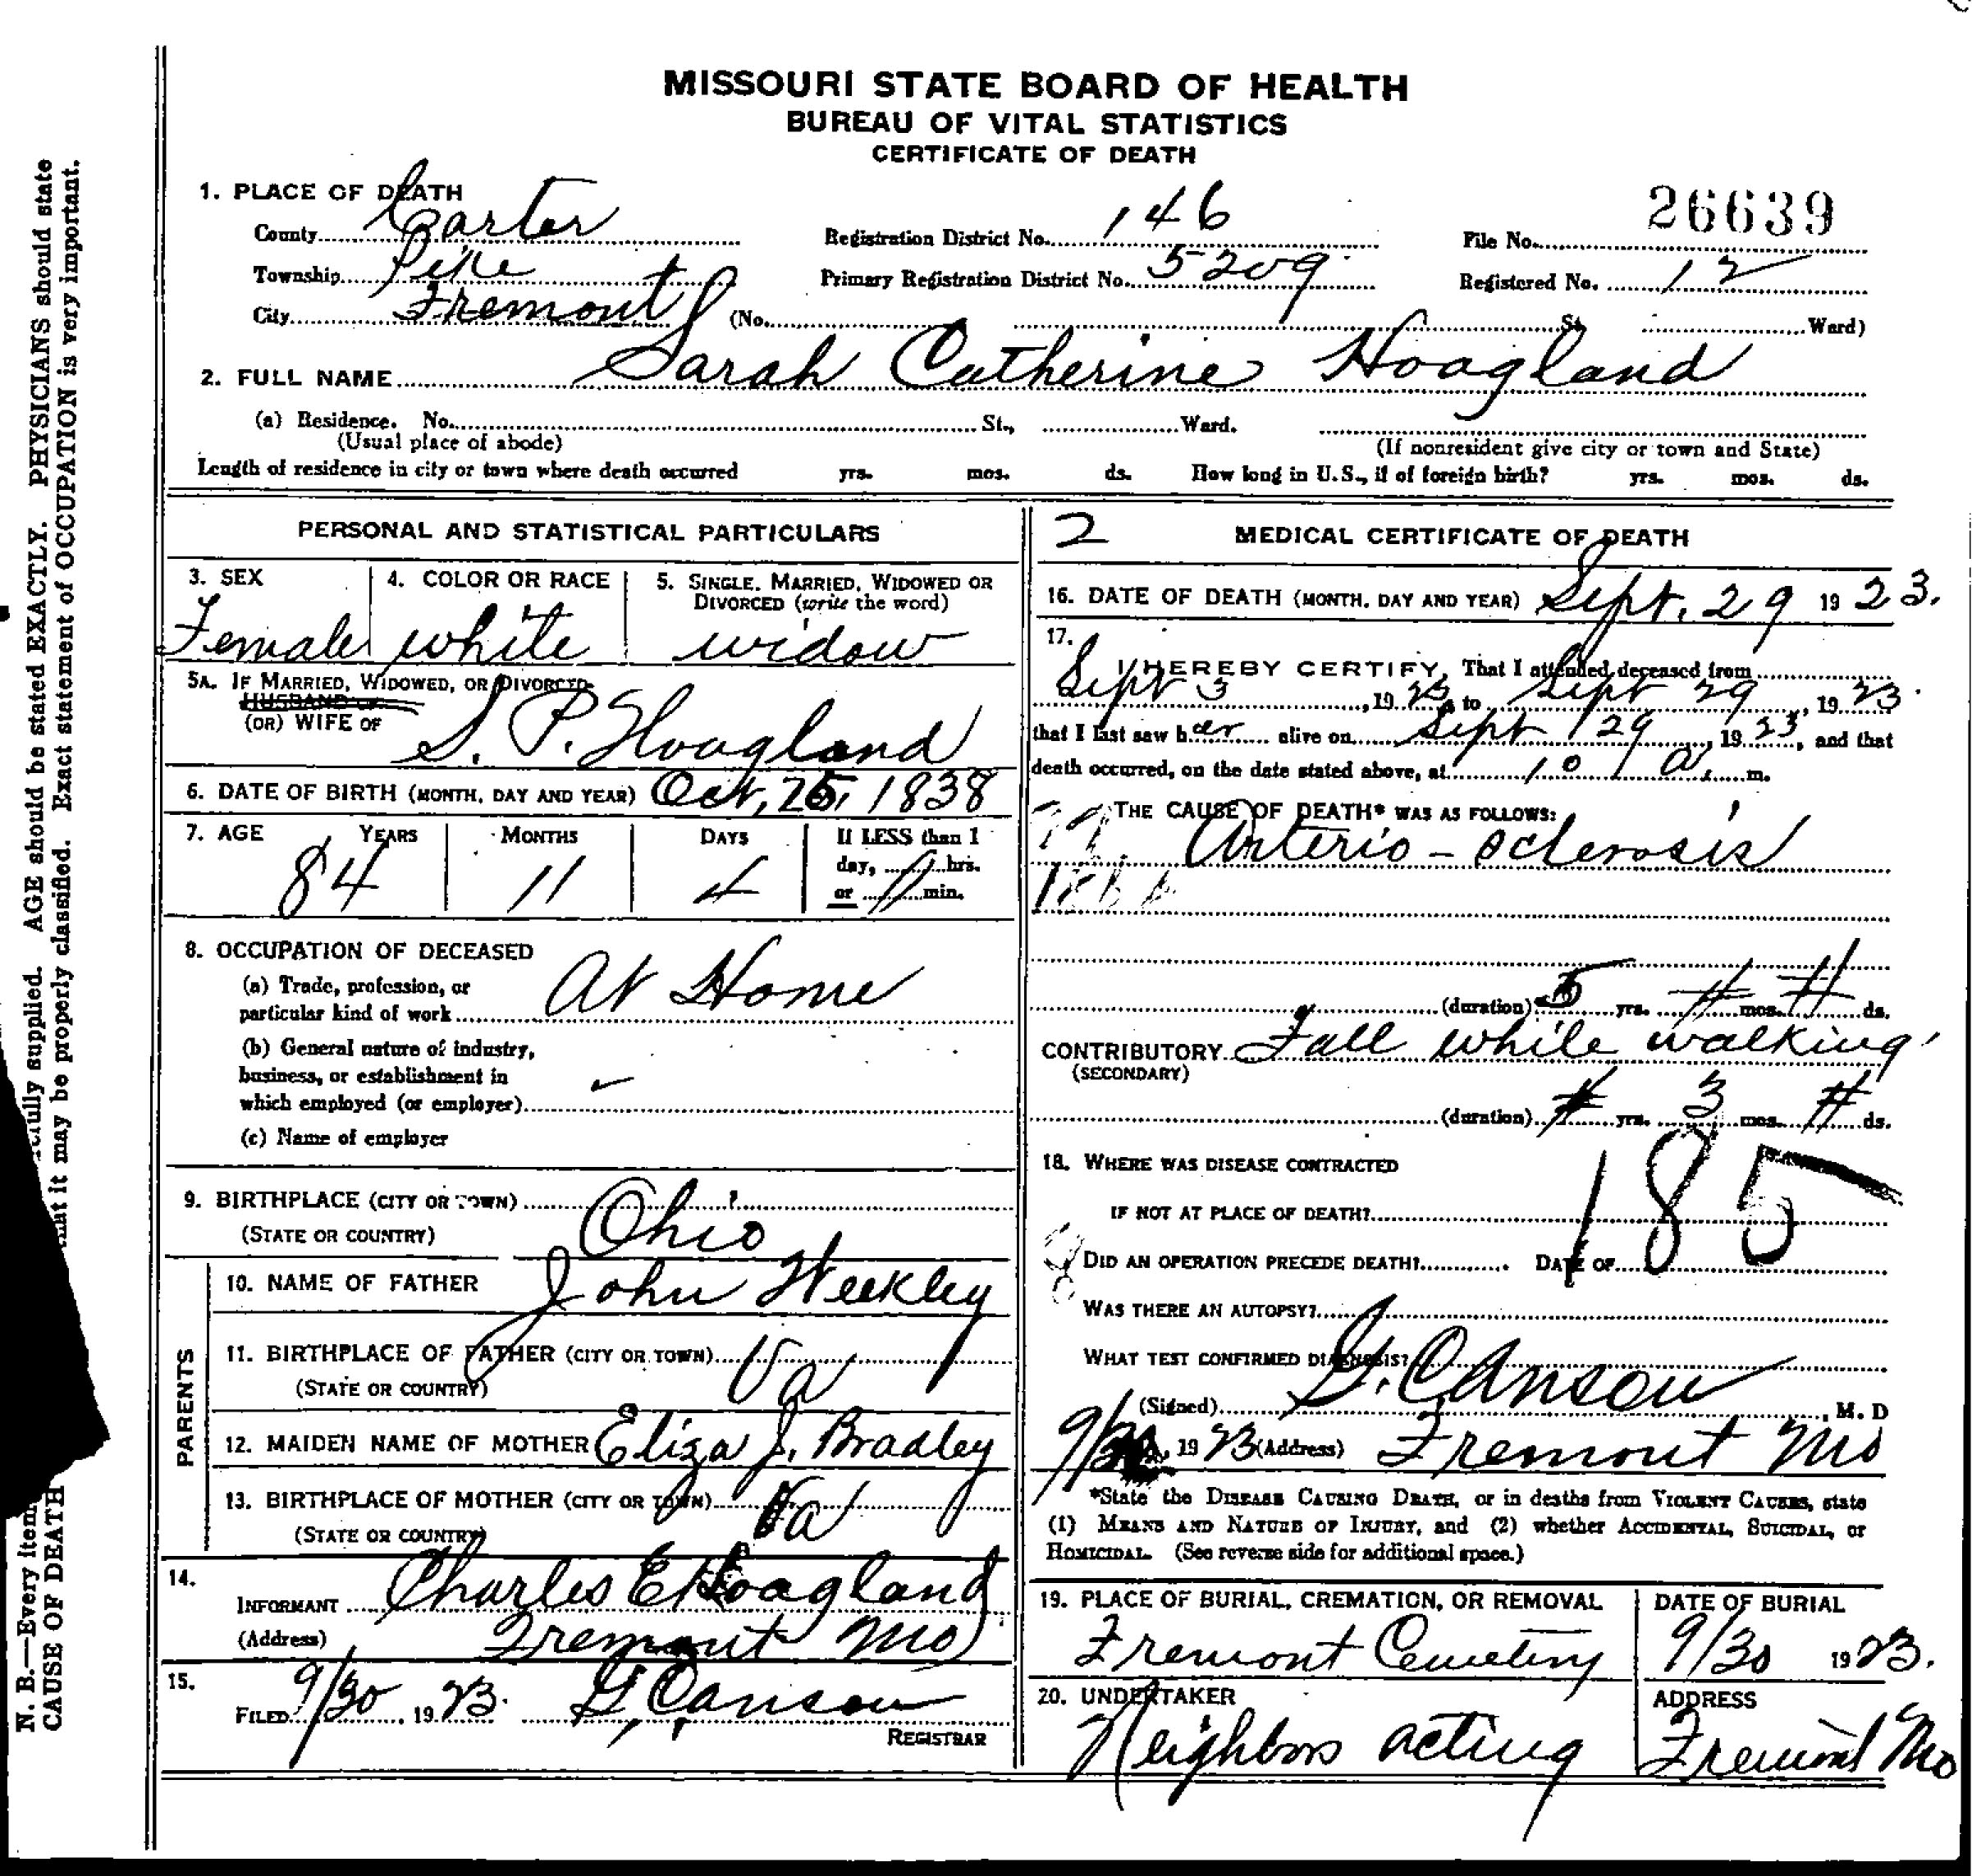 MISSOURI STATE BOARD OF HEALTH
BUREAU OF VITAL STATISTICS
CERTIFICATE OF DEATH
26639
1. PLACE OF DEATH
County Carter Registration District No. 146 File No.
Township Pike Primary Registration District No. 5209 Registered No. 12
City Fremont (No. St. Ward)
2. FULL NAME Sarah Catherine Hoagland
(a) Residence. No. St., Ward.
(Usual place of abode) (If nonresident give city or town and State)
Length of residence in city or town where death occurred yrs. mos. ds. How long in U.S., if of foreign birth? yrs. mos. ds.
PERSONAL AND STATISTICAL PARTICULARS
3. SEX 4. COLOR OR RACE 5. SINGLE, MARRIED, WIDOWED OR
DIVORCED (write the word)
Female white widow
5A. IF MARRIED, WIDOWED, OR DIVORCED
HUSBAND OF
(OR) WIFE OF S. P. Hoagland
6. DATE OF BIRTH (MONTH, DAY AND YEAR) Oct, 25, 1838
7. AGE YEARS MONTHS DAYS If LESS than 1
day, hrs.
84 11 4 or min.
8. OCCUPATION OF DECEASED
(a) Trade, profession, or
particular kind of work At Home
(b) General nature of industry,
business, or establishment in
which employed (or employer)
(c) Name of employer
9. BIRTHPLACE (CITY OR TOWN)
(STATE OR COUNTRY) Ohio
PARENTS
10. NAME OF FATHER John Weekley
11. BIRTHPLACE OF FATHER (CITY OR TOWN) Va
(STATE OR COUNTRY)
12. MAIDEN NAME OF MOTHER Eliza J. Bradley
13. BIRTHPLACE OF MOTHER (CITY OR TOWN) Va
(STATE OR COUNTRY)
14.
INFORMANT Charles E Hoagland
(Address) Fremont Mo
15.
FILED 9/30, 1923. G. Canson
REGISTRAR
2 MEDICAL CERTIFICATE OF DEATH
16. DATE OF DEATH (MONTH, DAY AND YEAR) Sept. 29 1923.
17.
I HEREBY CERTIFY, That I attended deceased from
Sept 3, 1923, to Sept 29, 1923.
that I last saw her alive on Sept 29, 1923, and that
death occurred, on the date stated above, at 10 a. m.
THE CAUSE OF DEATH* WAS AS FOLLOWS:
Arterio-sclerosis
(duration) 5 yrs. # mos. # ds.
CONTRIBUTORY Fall while walking
(SECONDARY)
(duration) # yrs. 3 mos. # ds.
185
18. WHERE WAS DISEASE CONTRACTED
IF NOT AT PLACE OF DEATH?
DID AN OPERATION PRECEDE DEATH? DATE OF
WAS THERE AN AUTOPSY?
WHAT TEST CONFIRMED DIAGNOSIS?
(Signed) G. Canson, M. D
, 1923 (Address) Fremont Mo
*State the DISEASE CAUSING DEATH, or in deaths from VIOLENT CAUSES, state
(1) MEANS AND NATURE OF INJURY, and (2) whether ACCIDENTAL, SUICIDAL, or
HOMICIDAL. (See reverse side for additional space.)
19. PLACE OF BURIAL, CREMATION, OR REMOVAL DATE OF BURIAL
Fremont Cemetery 9/30 1923.
20. UNDERTAKER ADDRESS
Neighbors acting Fremont Mo
N. B.—Every item fully supplied. AGE should be stated EXACTLY. PHYSICIANS should state
CAUSE OF DEATH that it may be properly classified. Exact statement of OCCUPATION is very important.